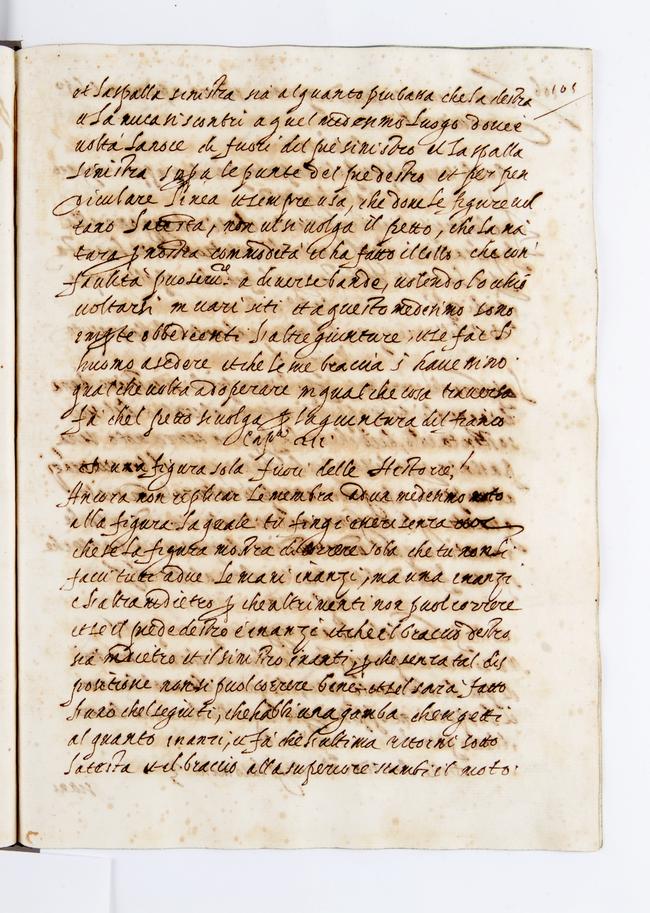 101
et la spalla sinistra sia alquanto piu bassa che la destra
e la nuca si scontri a quel medesmo luogo dove è
volta la noce di fuori del piè sinistro et la spalla
sinistra sopa le punte del piè destro et per pen
diculare linea et sempre usa, che dove le figure vol
tano la testa, non vi si volga il petto, che la na
tura p nostra commodità ci ha fatto il collo che con
facilità può a diverse bande, volendo l'ochio
voltarsi in vari siti et a questo medesimo sono
obbedienti l'altre giunture, et se fai l'
huomo a sedere et che le sue braccia s'havessino
qualche volta adoperare in qualche cosa traversa
fa che'l petto si volga la giuntura del fianco
Cap°
D'una figura sola fuori delle Historie
Ancora non replicar le membra ad un medesimo moto
alla figura la quale tu fingi essere senza
che se la figura mostra di correre sola che tu non li
facci tutti a due le mani inanzi, ma una inanzi
e l'altra indietro p che altrimenti non puol correre
et se il piede destro è inanzi et che il braccio destro
sia indietro et il sinistro inanti, p che senza tal dis
positione non si puol correre bene et se'l sarà fatto
uno che'l seguiti, che habbi una gamba che si getti
alquanto inanzi, e fa che l'altra ritorni sotto
la testa et il braccio alla superiore scambi il moto.